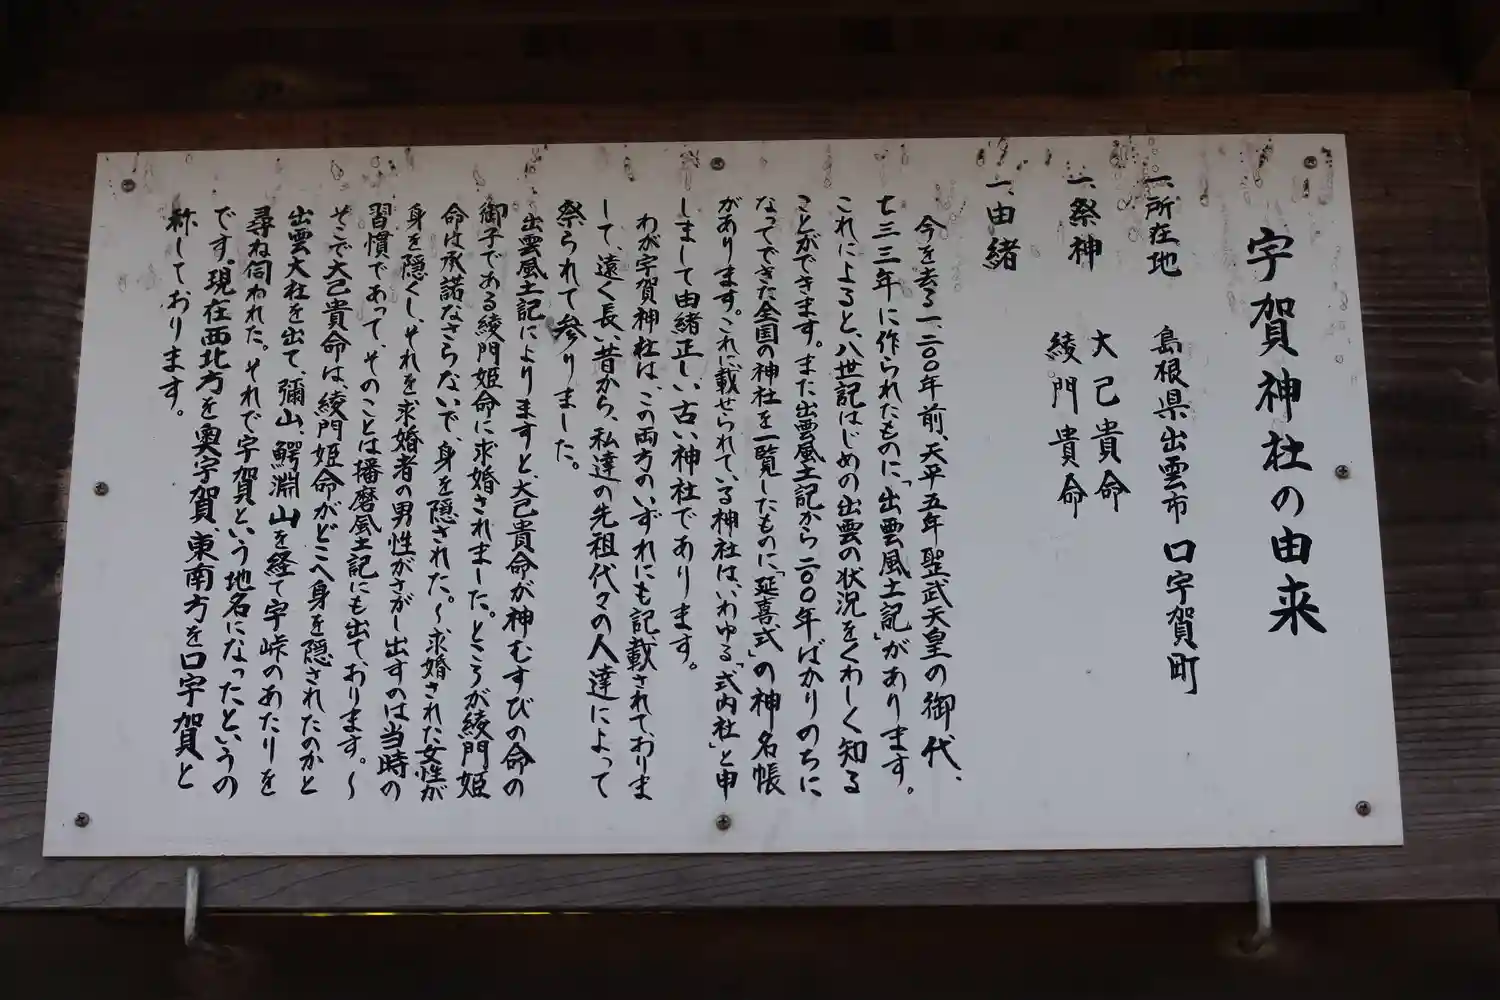 宇賀神社の由来
一、所在地 島根県出雲市口宇賀町
一、祭神 大己貴命
綾門貴命
一、由緒
今を去る一、二〇〇年前、天平五年聖武天皇の御代、
七三三年に作られたものに、「出雲風土記」があります。
これによると、八世記はじめの出雲の状況をくわしく知る
ことができます。また出雲風土記から二〇〇年ばかりのちに
なってできた全国の神社を一覧したものに「延喜式」の神名帳
があります。これに載せられている神社は、いわゆる「式内社」と申
しまして由緒正しい古い神社であります。
わが宇賀神社は、この両方のいずれにも記載されておりま
して、遠く長い昔から、私達の先祖代々の人達によって
祭られて参りました。
出雲風土記によりますと、大己貴命が神むすびの命の
御子である綾門姫命に求婚されました。ところが綾門姫
命は承諾なさらないで、身を隠された。〜求婚された女性が
身を隠くし、それを求婚者の男性がさがし出すのは当時の
習慣であって、そのことは播磨風土記にも出ております。〜
そこで大己貴命は、綾門姫命がどこへ身を隠されたのかと
出雲大社を出て、彌山、鰐淵山を経て宇峠のあたりを
尋ね伺われた。それで宇賀という地名になったというの
です。現在西北方を奥宇賀、東南方を口宇賀と
称しております。